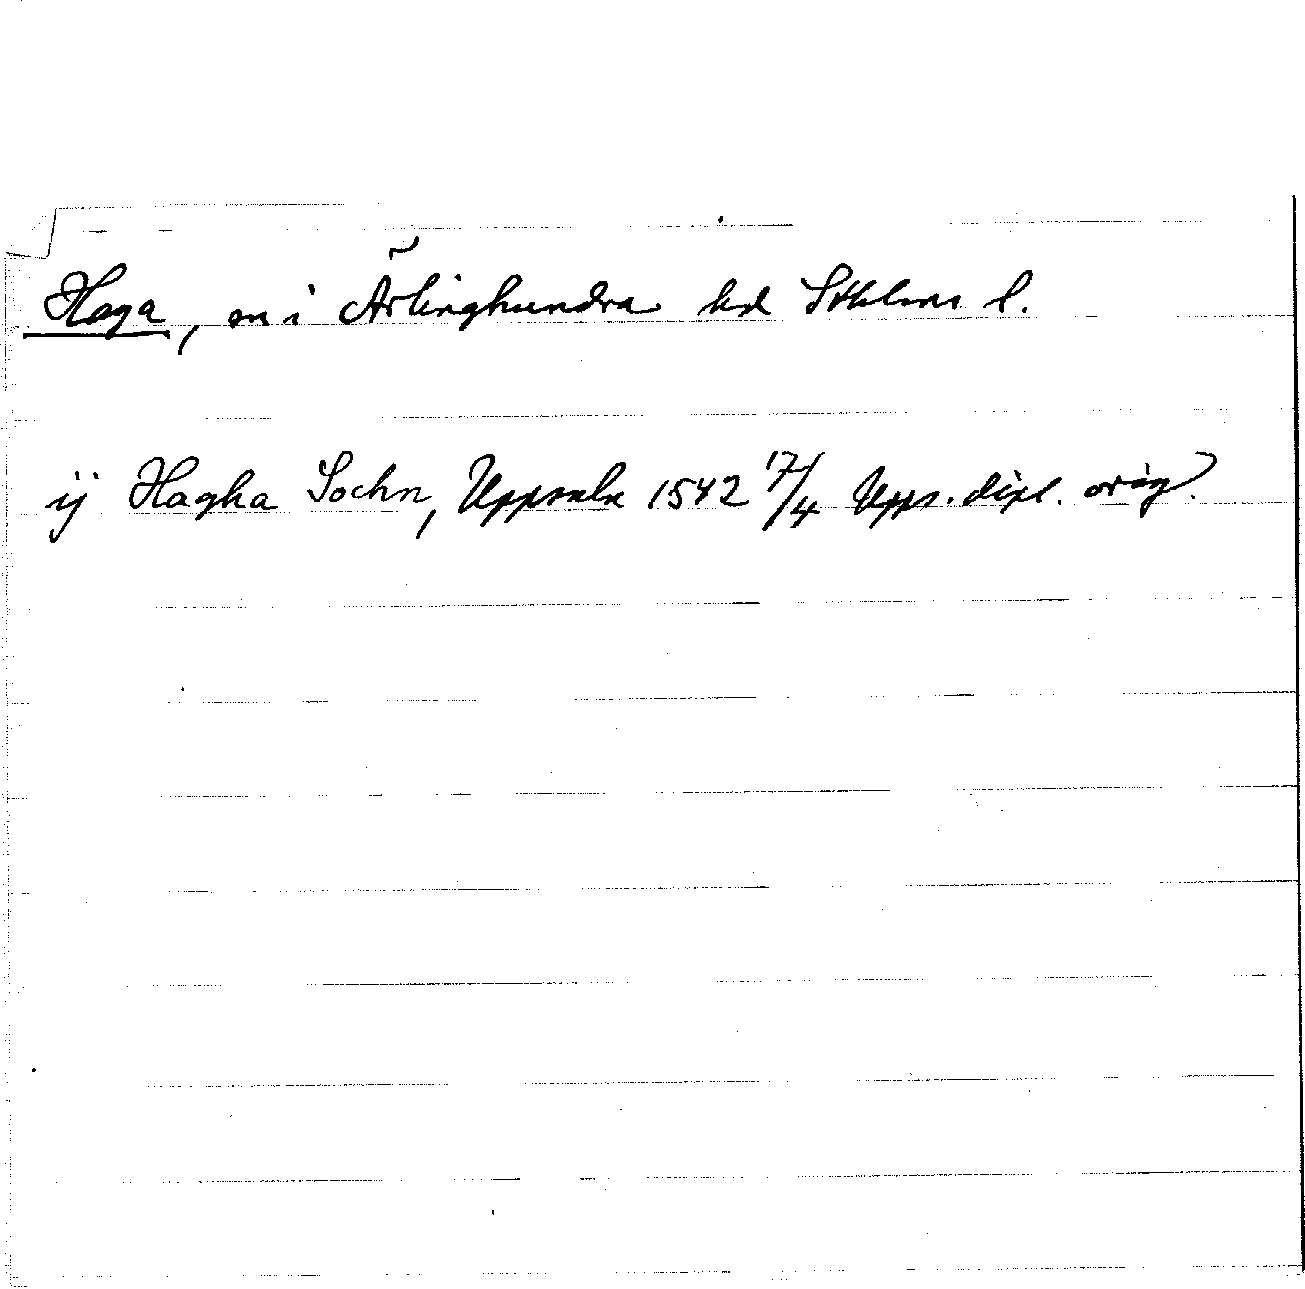 Haga, sn i Ärlinghundra hd Sthlms l.
ij Hagha Sochn, Uppsala 1542 17/4 Upps. dipl. orig.